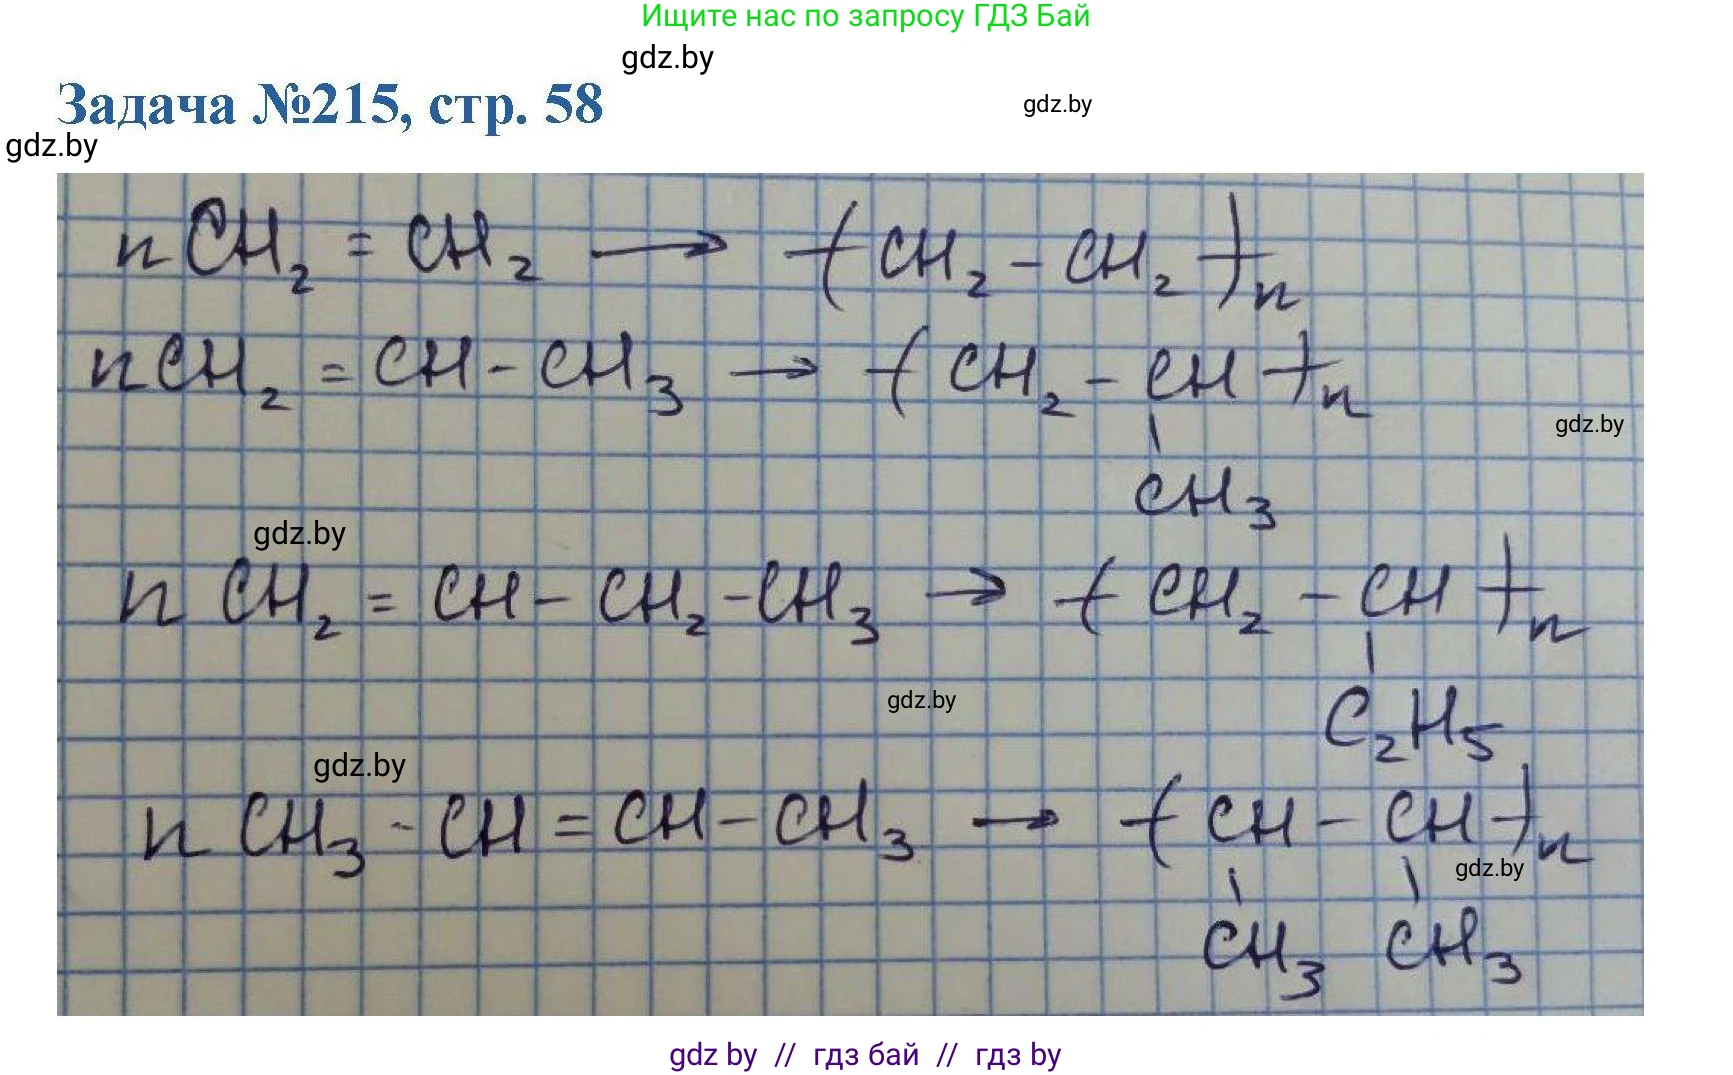 Ищите нас по запросу ГДЗ Бай
gdz.by
Задача №215, стр. 58
gdz.by
gdz.by
nCH₂ = CH₂ ⟶ -(CH₂ - CH₂)-n
nCH₂ = CH - CH₃ ⟶ -(CH₂ - CH)-n
gdz.by
CH₃
gdz.by
n CH₂ = CH - CH₂ - CH₃ → -(CH₂ - CH)-n
gdz.by
C₂H₅
gdz.by
n CH₃ - CH = CH - CH₃ → -(CH - CH)-n
gdz.by
CH₃ CH₃
gdz by // гдз бай // гдз by